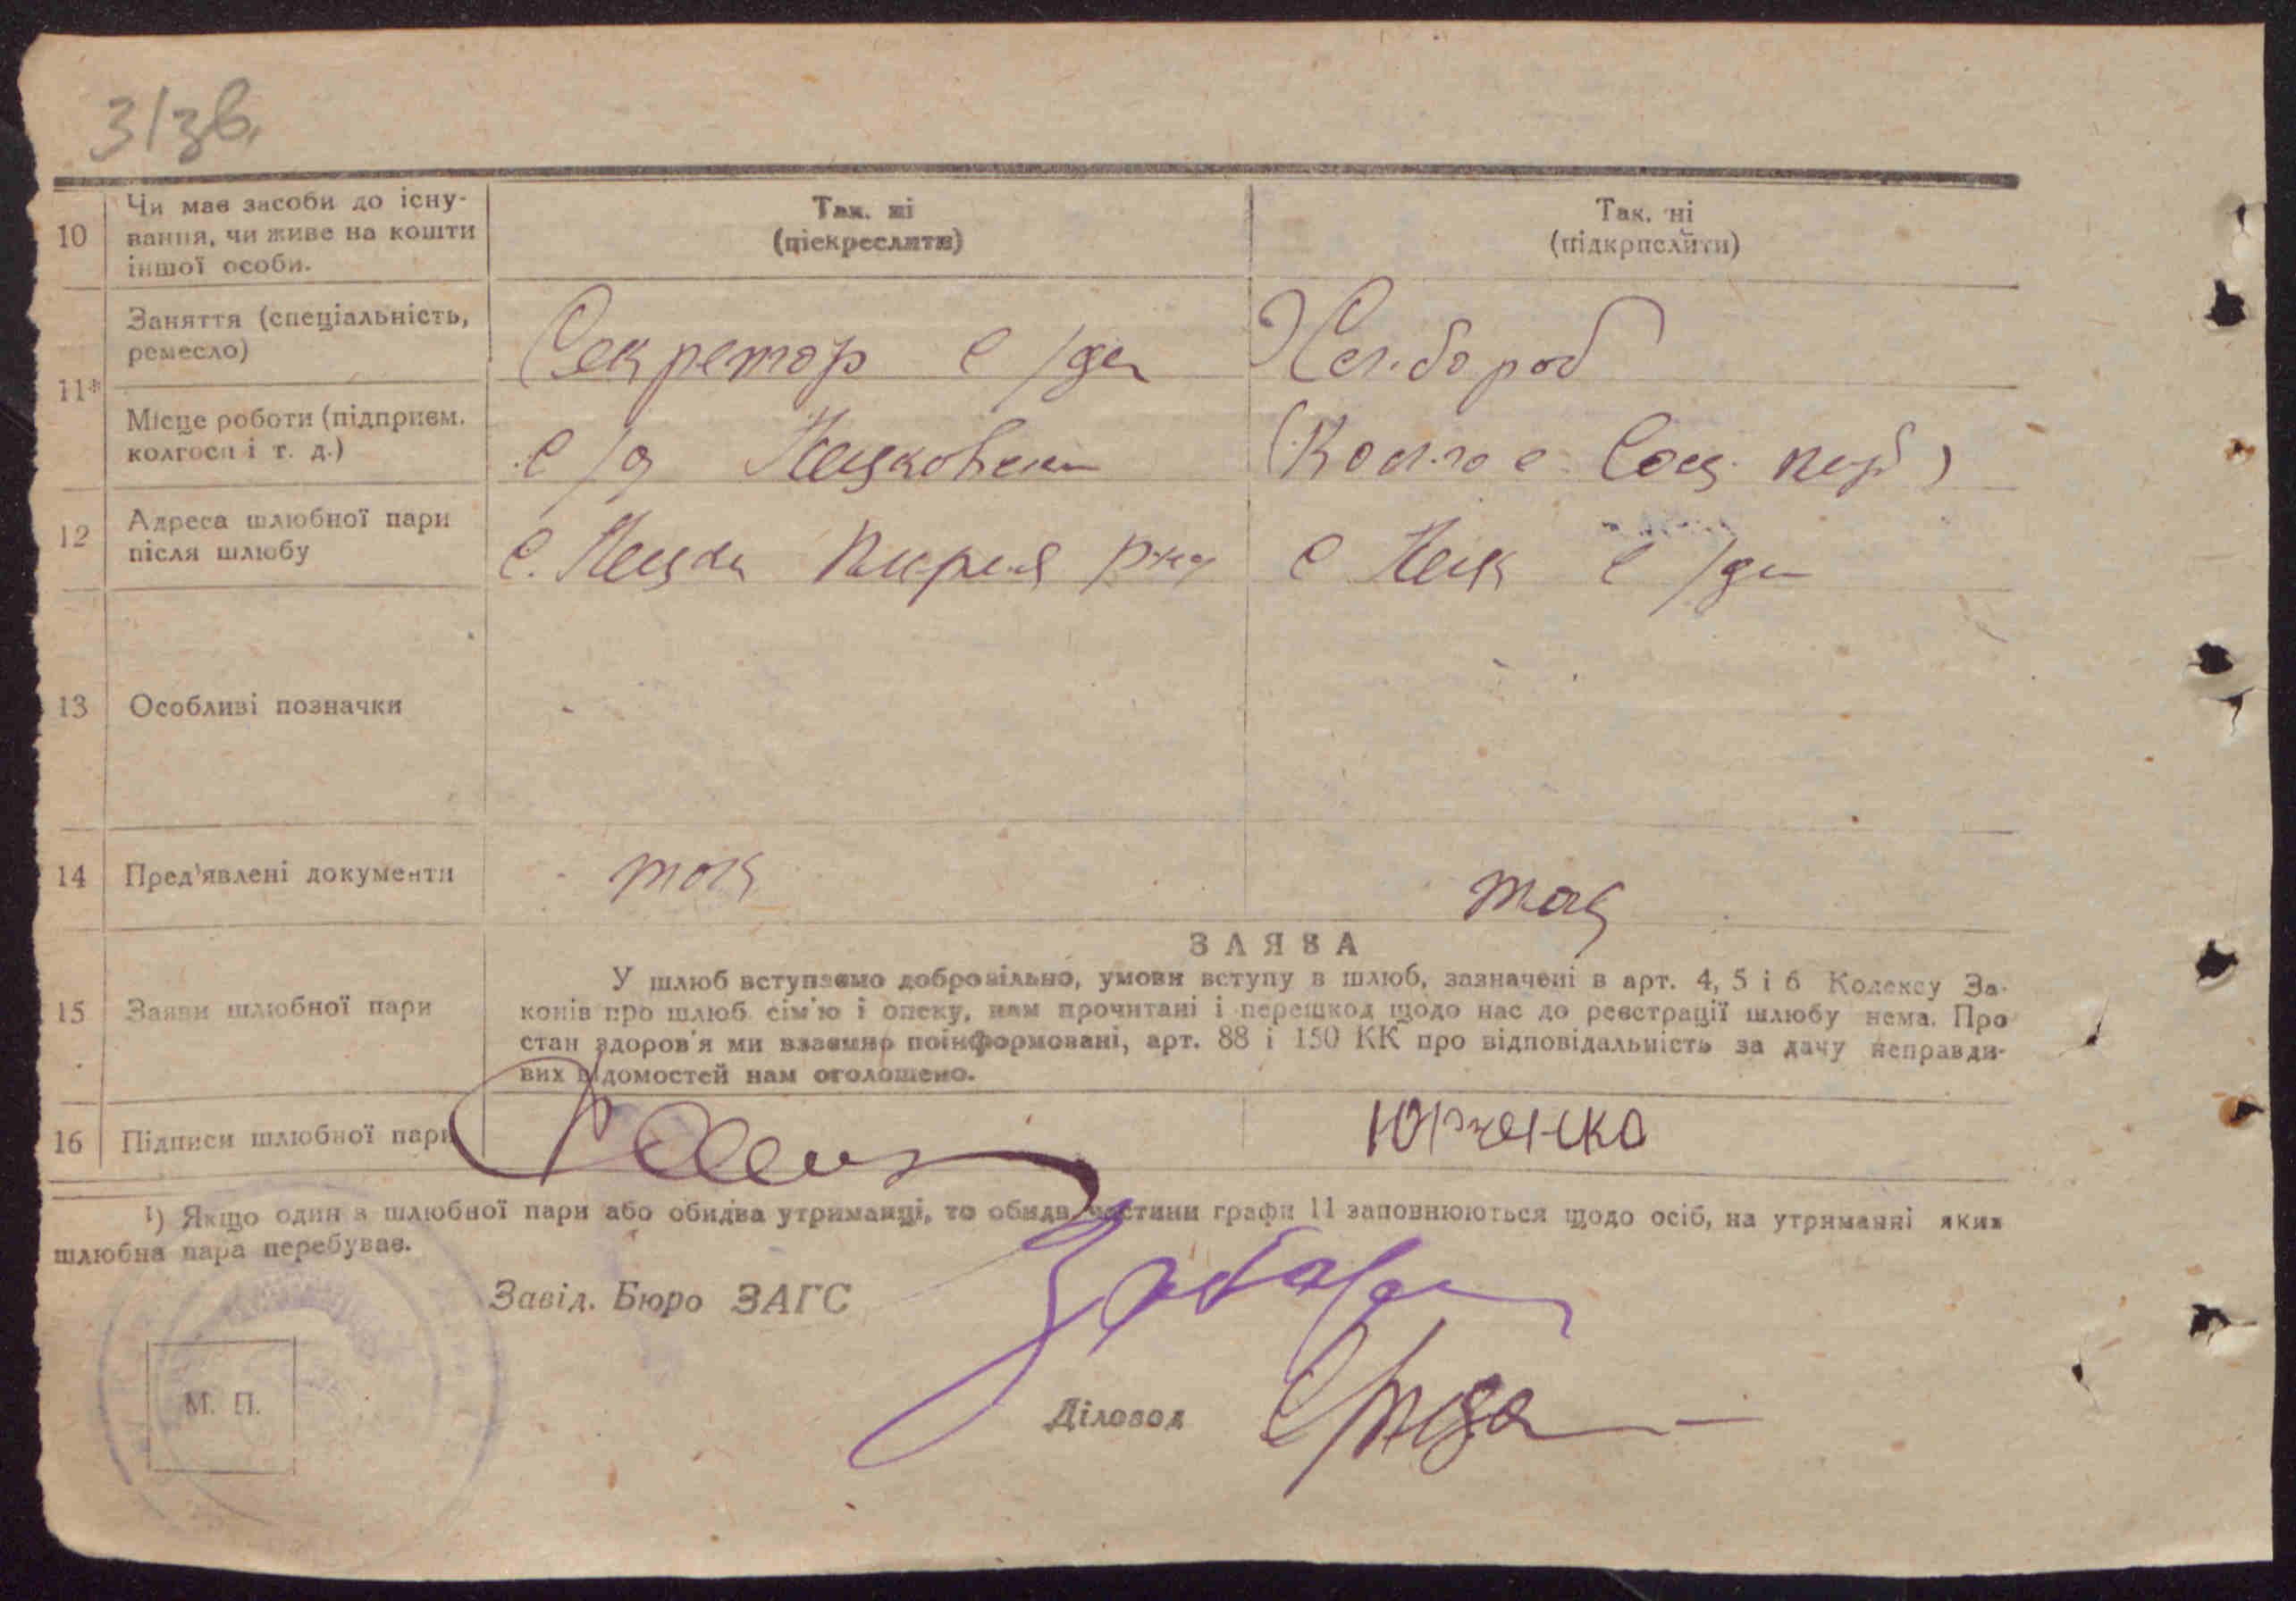 31зв.
10 Чи має засоби до існу-
вання, чи живе на кошти
іншої особи.
Так. ні
(піекреслити)
Так. ні
(підкрпслити)
11*
Заняття (спеціальність,
ремесло)
Секретар с/ди
Хлібород
Місце роботи (підприєм.
колгосп і т. д.)
с/д
(Колгос Соц.
12 Адреса шлюбної пари
після шлюбу
с.
с с/ди
13 Особливі позначки
14 Пред'явлені документи
так
так
ЗАЯВА
15 Заяви шлюбної пари
У шлюб вступаємо добровільно, умови вступу в шлюб, зазначені в арт. 4, 5 і 6 Кодексу За-
конів про шлюб сім'ю і опеку, нам прочитані і перешкод щодо нас до реєстрації шлюбу нема. Про
стан здоров'я ми взаємно поінформовані, арт. 88 і 150 КК про відповідальність за дачу неправди-
вих відомостей нам оголошено.
16 Підписи шлюбної пари
Юрченко
1) Якщо один з шлюбної пари або обидва утриманці, то обидві частини графи 11 заповнюються щодо осіб, на утриманні яких
шлюбна пара перебуває.
Завід. Бюро ЗАГС
М. П.
Діловод